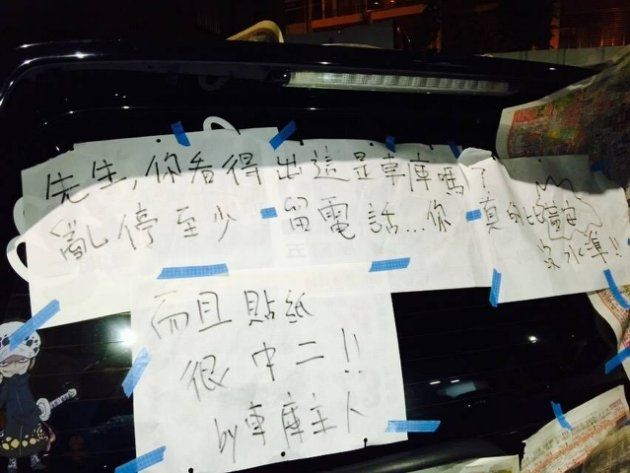 先生,你看得出這是車庫嗎?
亂停至少留電話...你真的比
沒水準!!
而且貼紙
很中二!!
by車庫主人